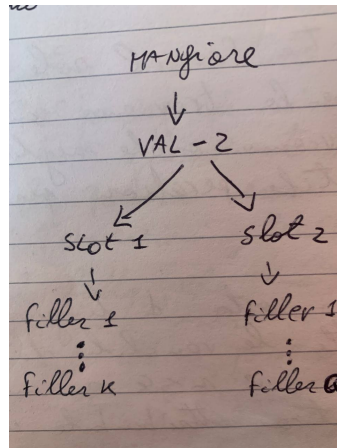 MANgiare
VAL - 2
Slot 1 slot 2
filler 1 filler 1
filler k filler